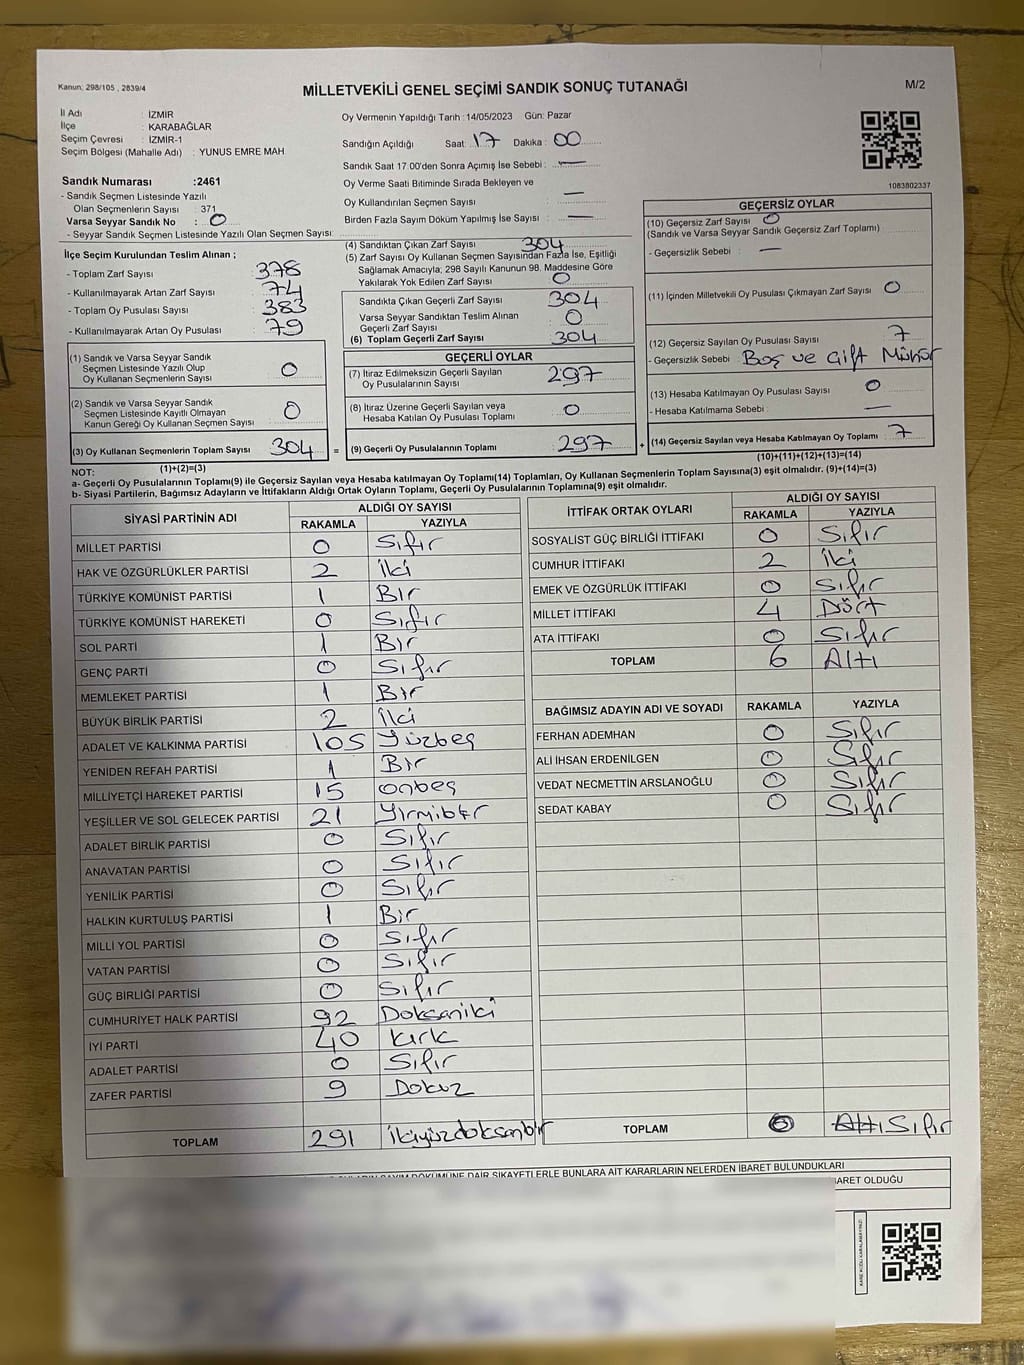 Kanun: 298/105 , 2839/4
MİLLETVEKİLİ GENEL SEÇİMİ SANDIK SONUÇ TUTANAĞI
M/2
İl Adı : İZMİR
İlçe : KARABAĞLAR
Seçim Çevresi : İZMİR-1
Seçim Bölgesi (Mahalle Adı) : YUNUS EMRE MAH
Oy Vermenin Yapıldığı Tarih :14/05/2023 Gün: Pazar
Sandığın Açıldığı Saat: 17 Dakika : 00
Sandık Saat 17.00'den Sonra Açımış İse Sebebi : —
Oy Verme Saati Bitiminde Sırada Bekleyen ve
Oy Kullandırılan Seçmen Sayısı : —
Birden Fazla Sayım Döküm Yapılmış İse Sayısı : —
1083802337
Sandık Numarası :2461
- Sandık Seçmen Listesinde Yazılı
Olan Seçmenlerin Sayısı : 371
Varsa Seyyar Sandık No : 0
- Seyyar Sandık Seçmen Listesinde Yazılı Olan Seçmen Sayısı:
İlçe Seçim Kurulundan Teslim Alınan ;
- Toplam Zarf Sayısı : 378
- Kullanılmayarak Artan Zarf Sayısı : 74
- Toplam Oy Pusulası Sayısı : 383
- Kullanılmayarak Artan Oy Pusulası : 79
(1) Sandık ve Varsa Seyyar Sandık
Seçmen Listesinde Yazılı Olup
Oy Kullanan Seçmenlerin Sayısı : 0
(2) Sandık ve Varsa Seyyar Sandık
Seçmen Listesinde Kayıtlı Olmayan
Kanun Gereği Oy Kullanan Seçmen Sayısı : 0
(3) Oy Kullanan Seçmenlerin Toplam Sayısı 304 =
(1)+(2)=(3)
(4) Sandıktan Çıkan Zarf Sayısı : 304
(5) Zarf Sayısı Oy Kullanan Seçmen Sayısından Fazla İse, Eşitliği
Sağlamak Amacıyla; 298 Sayılı Kanunun 98. Maddesine Göre
Yakılarak Yok Edilen Zarf Sayısı : 0
Sandıkta Çıkan Geçerli Zarf Sayısı : 304
Varsa Seyyar Sandıktan Teslim Alınan
Geçerli Zarf Sayısı : 0
(6) Toplam Geçerli Zarf Sayısı : 304
GEÇERLİ OYLAR
(7) İtiraz Edilmeksizin Geçerli Sayılan
Oy Pusulalarının Sayısı : 297
(8) İtiraz Üzerine Geçerli Sayılan veya
Hesaba Katılan Oy Pusulası Toplamı : 0
(9) Geçerli Oy Pusulalarının Toplamı : 297 +
GEÇERSİZ OYLAR
(10) Geçersiz Zarf Sayısı : 0
(Sandık ve Varsa Seyyar Sandık Geçersiz Zarf Toplamı)
- Geçersizlik Sebebi : —
(11) İçinden Milletvekili Oy Pusulası Çıkmayan Zarf Sayısı : 0
(12) Geçersiz Sayılan Oy Pusulası Sayısı : 7
- Geçersizlik Sebebi : Boş ve Çift Mühür
(13) Hesaba Katılmayan Oy Pusulası Sayısı : 0
- Hesaba Katılmama Sebebi : —
(14) Geçersiz Sayılan veya Hesaba Katılmayan Oy Toplamı : 7
(10)+(11)+(12)+(13)=(14)
NOT:
a- Geçerli Oy Pusulalarının Toplamı(9) ile Geçersiz Sayılan veya Hesaba katılmayan Oy Toplamı(14) Toplamları, Oy Kullanan Seçmenlerin Toplam Sayısına(3) eşit olmalıdır. (9)+(14)=(3)
b- Siyasi Partilerin, Bağımsız Adayların ve İttifakların Aldığı Ortak Oyların Toplamı, Geçerli Oy Pusulalarının Toplamına(9) eşit olmalıdır.
SİYASİ PARTİNİN ADI ALDIĞI OY SAYISI
RAKAMLA YAZIYLA
MİLLET PARTİSİ 0 Sıfır
HAK VE ÖZGÜRLÜKLER PARTİSİ 2 iki
TÜRKİYE KOMÜNİST PARTİSİ 1 Bir
TÜRKİYE KOMÜNİST HAREKETİ 0 Sıfır
SOL PARTİ 1 Bir
GENÇ PARTİ 0 Sıfır
MEMLEKET PARTİSİ 1 Bir
BÜYÜK BİRLİK PARTİSİ 2 iki
ADALET VE KALKINMA PARTİSİ 105 Yüzbeş
YENİDEN REFAH PARTİSİ 1 Bir
MİLLİYETÇİ HAREKET PARTİSİ 15 onbeş
YEŞİLLER VE SOL GELECEK PARTİSİ 21 Yirmibir
ADALET BİRLİK PARTİSİ 0 Sıfır
ANAVATAN PARTİSİ 0 Sıfır
YENİLİK PARTİSİ 0 Sıfır
HALKIN KURTULUŞ PARTİSİ 1 Bir
MİLLİ YOL PARTİSİ 0 Sıfır
VATAN PARTİSİ 0 Sıfır
GÜÇ BİRLİĞİ PARTİSİ 0 Sıfır
CUMHURİYET HALK PARTİSİ 92 Doksaniki
İYİ PARTİ 40 kırk
ADALET PARTİSİ 0 Sıfır
ZAFER PARTİSİ 9 Dokuz
TOPLAM 291 ikiyüzdoksanbir
İTTİFAK ORTAK OYLARI ALDIĞI OY SAYISI
RAKAMLA YAZIYLA
SOSYALİST GÜÇ BİRLİĞİ İTTİFAKI 0 Sıfır
CUMHUR İTTİFAKI 2 iki
EMEK VE ÖZGÜRLÜK İTTİFAKI 0 Sıfır
MİLLET İTTİFAKI 4 Dört
ATA İTTİFAKI 0 Sıfır
TOPLAM 6 Altı
BAĞIMSIZ ADAYIN ADI VE SOYADI RAKAMLA YAZIYLA
FERHAN ADEMHAN 0 Sıfır
ALİ İHSAN ERDENİLGEN 0 Sıfır
VEDAT NECMETTİN ARSLANOĞLU 0 Sıfır
SEDAT KABAY 0 Sıfır
TOPLAM 0 Altı Sıfır
DÖKÜMÜNE DAİR ŞİKAYETLERLE BUNLARA AİT KARARLARIN NELERDEN İBARET BULUNDUKLARI
OLDUĞU